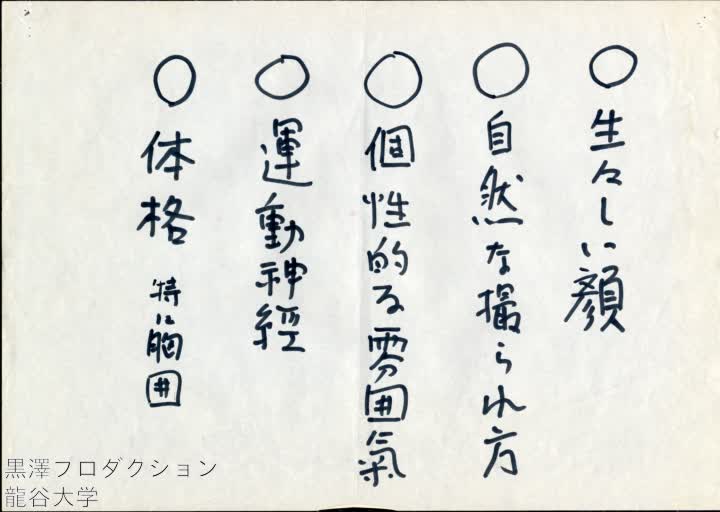 ○生々しい顔
○自然な撮られ方
○個性的な雰囲氣
○運動神経
○体格 特に胸囲
黒澤プロダクション
龍谷大学